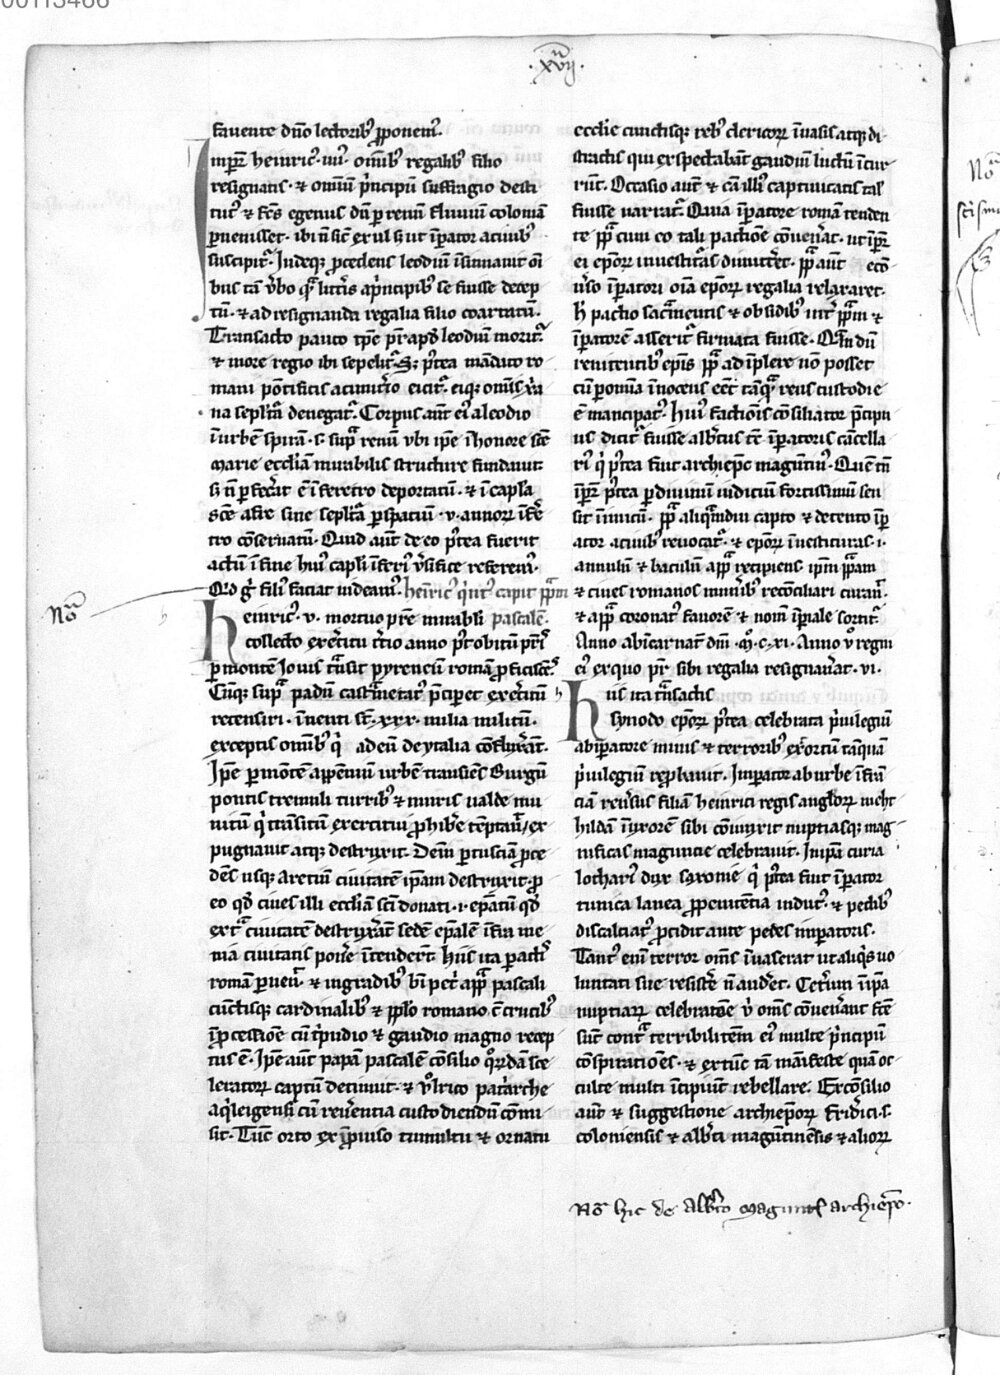 00113466
·xvij·
fauente dño lectoribꝰ ꝓponemꝰ.
Imp̄r heinricꝰ·iiii· om̄ibꝰ regalibꝰ filio
resignatis· ⁊ om̄iū p̄ncipiū suffragio desti
tutꝰ ⁊ egenus dū ꝑ renum fluuiū coloniā
ꝑuenisset· ibi ñ sic̄ exul sʒ ut īp̄ator a ciuibꝰ
suscipit̄· Indeqʒ ꝓcedens leodiū īsinuauit oī
bus tā ṽbo qͣ litt̄is a p̄ncipibꝰ se fuisse decep
tū· ⁊ ad resignanda regalia filio coartatū·
Transacto pauco tp̄e apđ leodium morit̄·
⁊ more regio ibi sepelit̄· Sʒ p̄tea mādato ro
mani pōtificis eicit̄· eiqʒ om̄is xp̄ia
na sepl̄tͣa denegat̄· Corpus aūt eiꝰ a leodio
ī urbem spirā· s· supͣ renū vbi ip̄e ī honore sc̄e
marie eccliam mirabilis structure fundauit
sʒ ñ ꝑfec̄it ē ī feretro deportatū· ⁊ ī capella
sc̄e afre sine sepl̄tͣa ꝑ spatiū ·v· annoꝝ ī fe
tro cōseruatū· Quid aūt de eo p̄tea fuerit
actū ī fine huiꝰ capl̄i īferiꝰ referemꝰ·
Nōᵃ
Qđ gͦ filiꝰ faciat uideamꝰ· heinricꝰ qͥntꝰ capit ꝓꝑm
heinricꝰ·v· mortuo pr̄e mirabil̄i pascalē·
collecto ex̄citu t̄cio anno p̄t obitum pr̄is
ꝑ montem Iouis tͣnsit pyreneū romā ꝓficiscēs·
Cūqʒ supͣ padū castͣmetatꝰ p̄cip̄et ex̄citum
recenseri· īuenti st̄·xxx· milia militū·
exceptis om̄ibꝰ qͥ ad eū de ytalia cōfluxāt·
Ip̄e ꝑ mōtē appenninū urbē transiēs Burgū
pontis tremuli turribꝰ ⁊ muris ualde mu
nitum qͥ trāsitum exercitui ꝓhibe tēptauit/ex
pugnauit atqʒ destruxit· Deīn ꝑ tusciā ꝓce
dēs usqʒ aretiū ciuitatē ip̄am destruxit· ꝓ
eo qđ ciues illi eccliam sc̄i donati ·i· ep̄atū qđ
extͣ ciuitatē destruxāt sedē ep̄alē īfra me
nia ciuitatis pon̄e ītendert· hiis ita ꝑactꝭ
romā ꝑuen̄· ⁊ in gradibꝰ bt̄i pet̄i a ꝑꝑ pascali
cūctisqʒ cardinalibꝰ ⁊ pp̄lo romano c̄ crucibꝰ
ī ꝓcessione cū tͥpudio ⁊ gaudio magno recep
tus ē· Ip̄e aūt papam pascalē cōsilio qͦrdā sce
leratoꝝ captū detinuit· ⁊ vlͦrico patͥarche
aqͥleigensi cū reuerentia custodiendū cōmi
sit· Tūc orto ex ꝓuiso tumultu ⁊ ornatu
ecclie cunctisqʒ rebꝰ clericoꝝ īuasis atqʒ di
stractis qui expectabant gaudiū luctū īcur
rūt· Occasio aūt ⁊ cā illiꝰ captiuitatis talˢ
fuisse narrat̄· Quia īp̄atore romā tenden
te ꝑꝑ cum eo tali pactione cōuen̄at· ut īp̄r
ei ep̄oꝝ inuestit̄as dimitt̄et· ꝑꝑ aūt eco
ṽso īp̄atori oīa ep̄oꝝ regalia relaxaret·
h̄ pactio sacͣmentis ⁊ obsidibꝰ int̄ ꝑꝑm ⁊
īp̄atorē asserit̄ firmata fuisse· Qn̄ dū
renitentibꝰ ep̄is ꝑꝑ adīplere non posset
cū pͦmiss̄a īnocens eēt tāqͣ reus custodie
ē mancipatꝰ· huiꝰ factionis cōsiliator p̄cipu
us dicit̄ fuisse alb̄tus tūc īp̄atoris cācella
riꝰ qͥ p̄tea fuit archiep̄c magūtinꝰ· Quē tñ
īp̄r p̄tea ꝑ diuinū iudiciū fortissimū sen
sit īimicū· ꝑꝑ aliqͣmdiu capto ⁊ detento īp̄
ator a ciuibꝰ reuocat̄· ⁊ ep̄oꝝ īuestituras·i·
annulū ⁊ baculū a ꝑꝑ recipiens ip̄m ꝑꝑam
⁊ ciues romanos mun̄ibꝰ recōciliari curauit·
⁊ a ꝑꝑ coronatꝰ fauorē ⁊ nom̄ īp̄iale sortit̄·
Anno ab īcarnat̄ dn̄i·M̊·c·xi· Anno v̊ regni
eiꝰ ex quo pr̄ sibi regalia resignau̾at·vi·
hiis ita tͣnsactis
synodo ep̄oꝝ p̄tea celebrata p̄uilegiū
ab īp̄atore minis ⁊ terroribꝰ extortū tanquā
p̄uilegiū rep̄bauit· Imperator ab urbe ī frā
ciam reu̾sus filiam heinrici regis angloꝝ meht
hildā ī uxorem sibi cōiunxit nuptiasqʒ mag
nificas maguntie celebrauit· In ip̄a curia
lothariꝰ dux saxonie qͥ p̄tea fuit īp̄ator
tunica lanea ꝓ penitentia indutꝰ· ⁊ pedibꝰ
discalciatꝰ ꝓcidit ante pedes imperatoris·
Tantꝰ enī terror om̄s īuaserat ut aliqͥs uo
luntati sue resist̄e ñ aud̄et· Cet̄um ī ip̄a
nuptiaꝝ celebratōe v̊ om̄s cōuen̄ant fc̄e
sūt contͣ terribilitatem eiꝰ multe p̄ncipum
cōspirationes· ⁊ ex tūc tā māifeste quā oc
culte multi īcipiūt rebellare· Ex cōsilio
aūt ⁊ suggestione archiep̄oꝝ Frid̄ici·s·
coloniensis ⁊ alb̄ti magūtinēsis ⁊ alioꝝ
Nō hic de Alb̄to Magunt̄ archiep̄o·
Nōᵃ